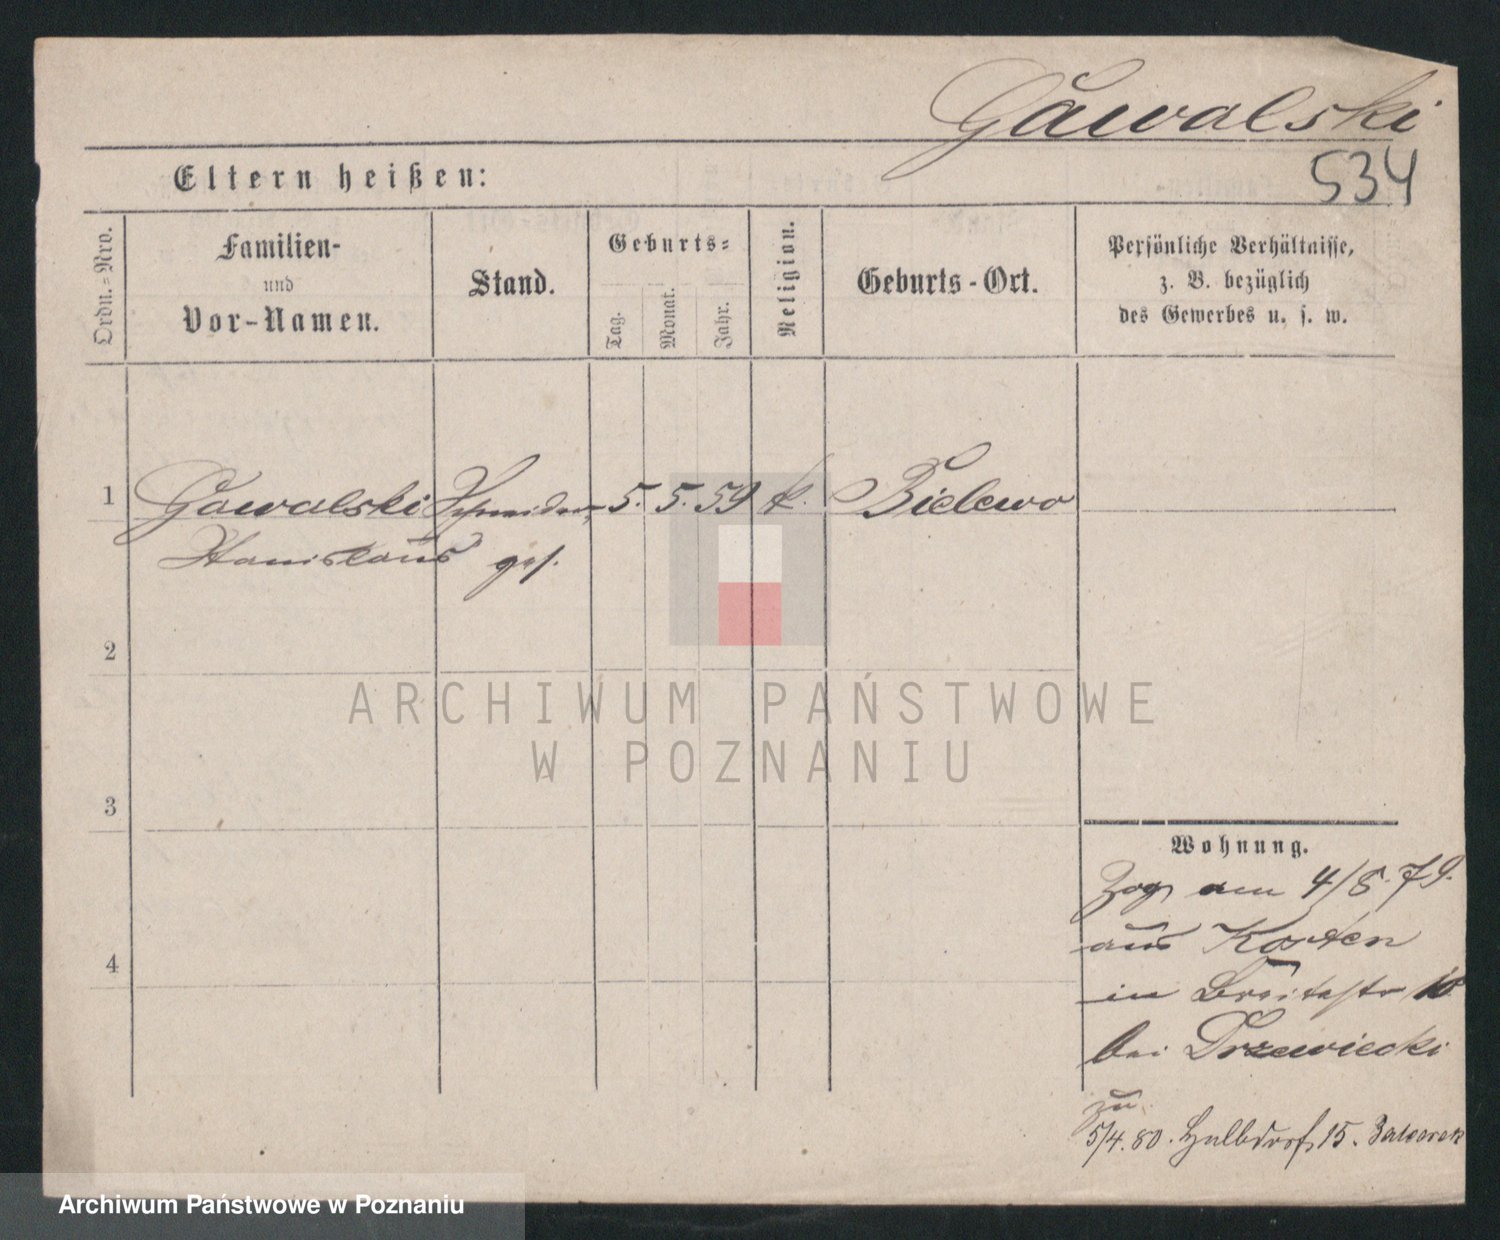 Gawalski
534
Eltern heißen:
Ordn.-Nro.
Familien-
und
Vor-Namen.
Stand.
Geburts-
Tag.
Monat.
Jahr.
Religion.
Geburts-Ort.
Persönliche Verhältnisse,
z. B. bezüglich
des Gewerbes u. s. w.
1
Gawalski Schneider 5. 5. 59 k. Bielewo
Stanislaus ges.
2
3
4
Wohnung.
Zog am 4/8. 79.
aus Kosten
in Breitestr 10
bei Drzewiecki
zu
5/4. 80. Halbdorf 15.
ARCHIWUM PAŃSTWOWE
W POZNANIU
Archiwum Państwowe w Poznaniu